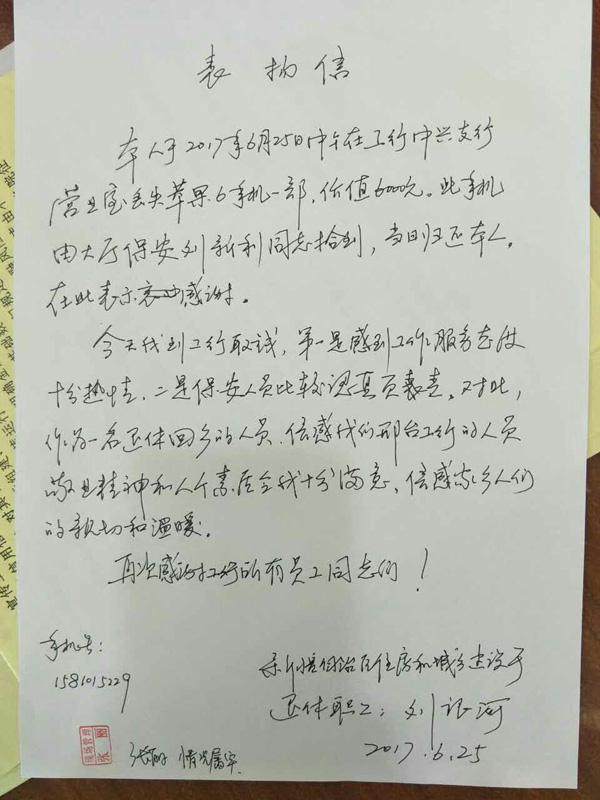 表扬信
本人于2017年6月25日中午在工行中兴支行
营业室丢失苹果6手机一部,价值6000元。此手机
由大厅保安刘新利同志拾到,当日归还本人。
在此表示衷心感谢。
今天我到工行取钱,第一是感到工作服务态度
十分热情,二是保安人员比较认真负责。对此,
作为一名退休回乡的人员,倍感我们邢台工行的人员
敬业精神和人个素质令我十分满意,倍感家乡人们
的亲切和温暖。
再次感谢工行所有员工同志们!
手机号:
1581015229
自治区住房和城乡建设厅
退休职工:刘银河
2017.6.25
情况属实